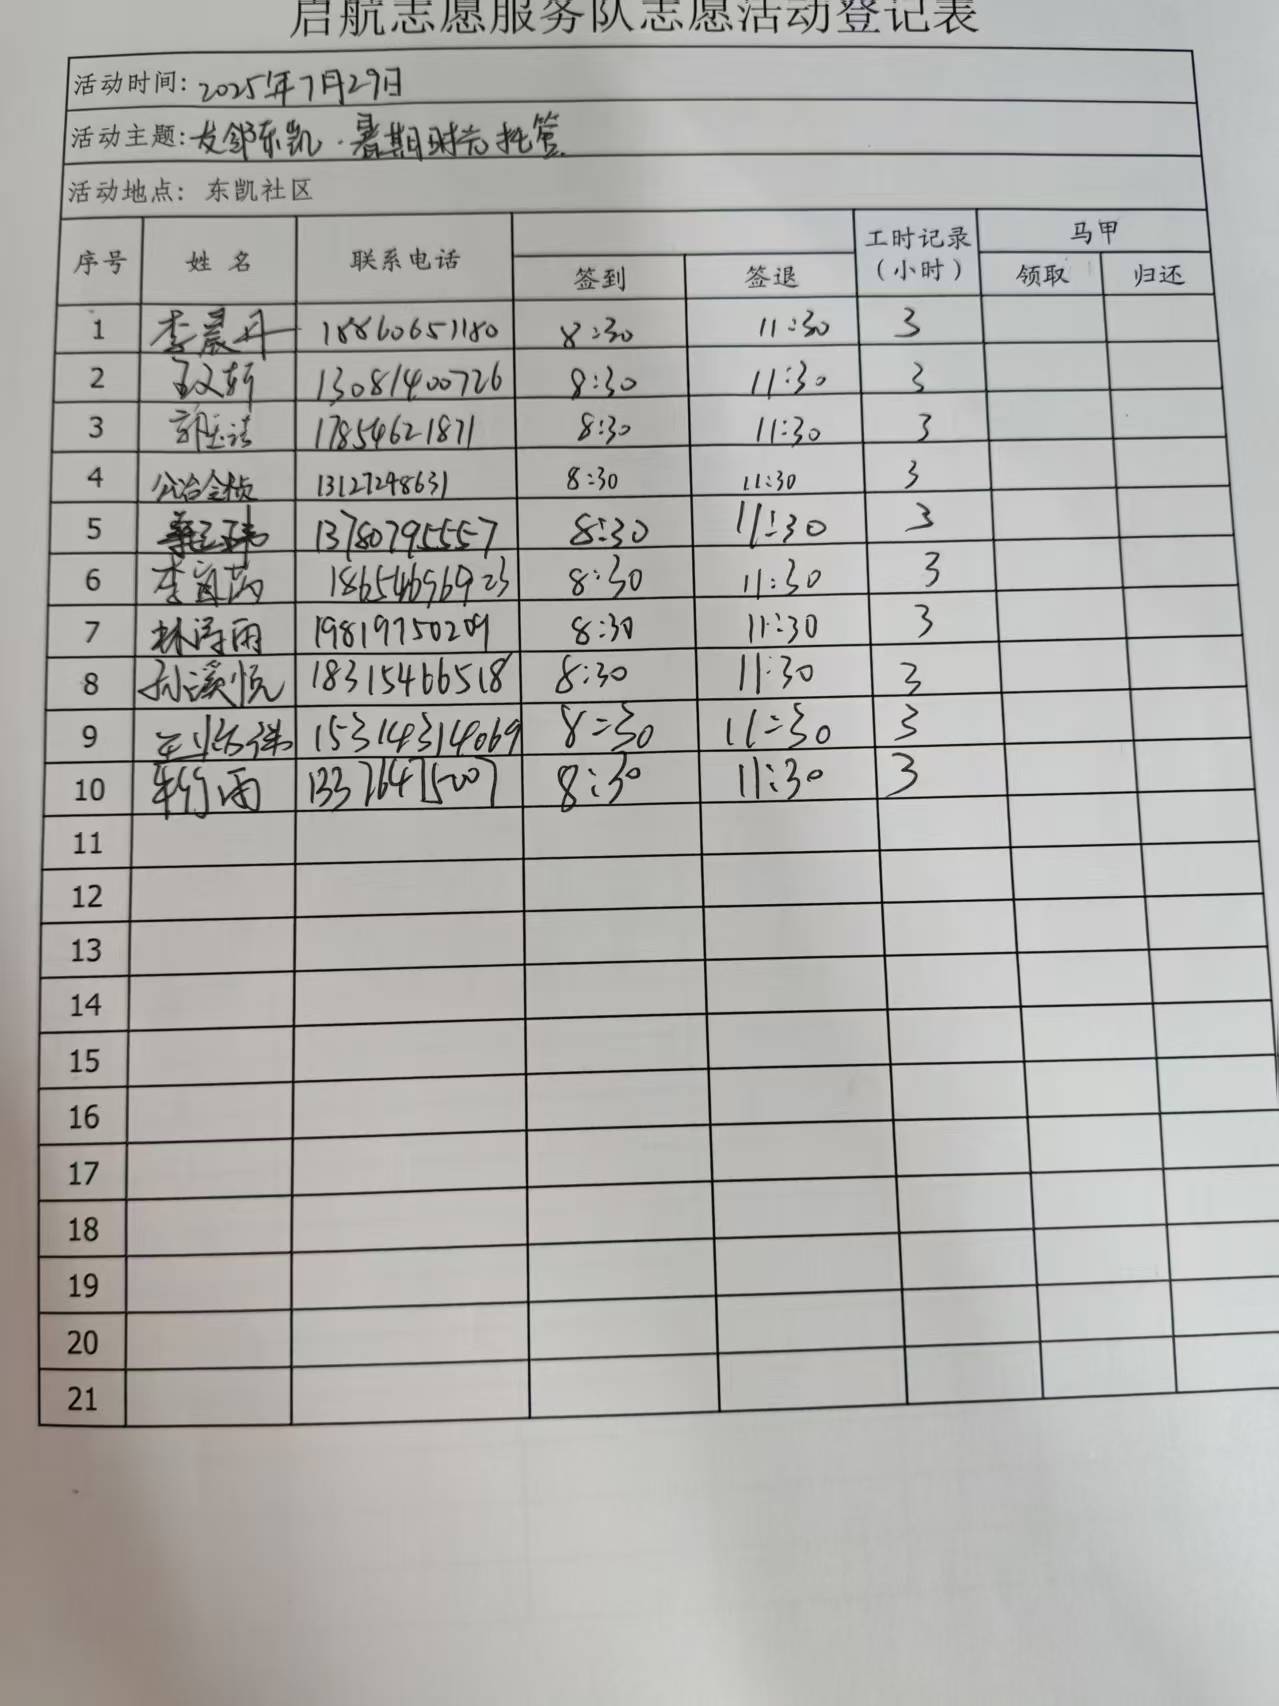 启航志愿服务队志愿活动登记表
活动时间: 2025年7月29日
活动主题: 友邻东凯·暑期时光托管
活动地点: 东凯社区
序号 姓名 联系电话 签到 签退 工时记录(小时) 马甲 领取 归还
1 李晨丹 18860651180 8:30 11:30 3
2 13081400726 8:30 11:30 3
3 17854621871 8:30 11:30 3
4 公冶金桢 13127248631 8:30 11:30 3
5 13780795557 8:30 11:30 3
6 18654696923 8:30 11:30 3
7 林涛雨 19819750209 8:30 11:30 3
8 孙溪悦 18315466518 8:30 11:30 3
9 15314314069 8:30 11:30 3
10 牟竹雨 13376475007 8:30 11:30 3
11
12
13
14
15
16
17
18
19
20
21